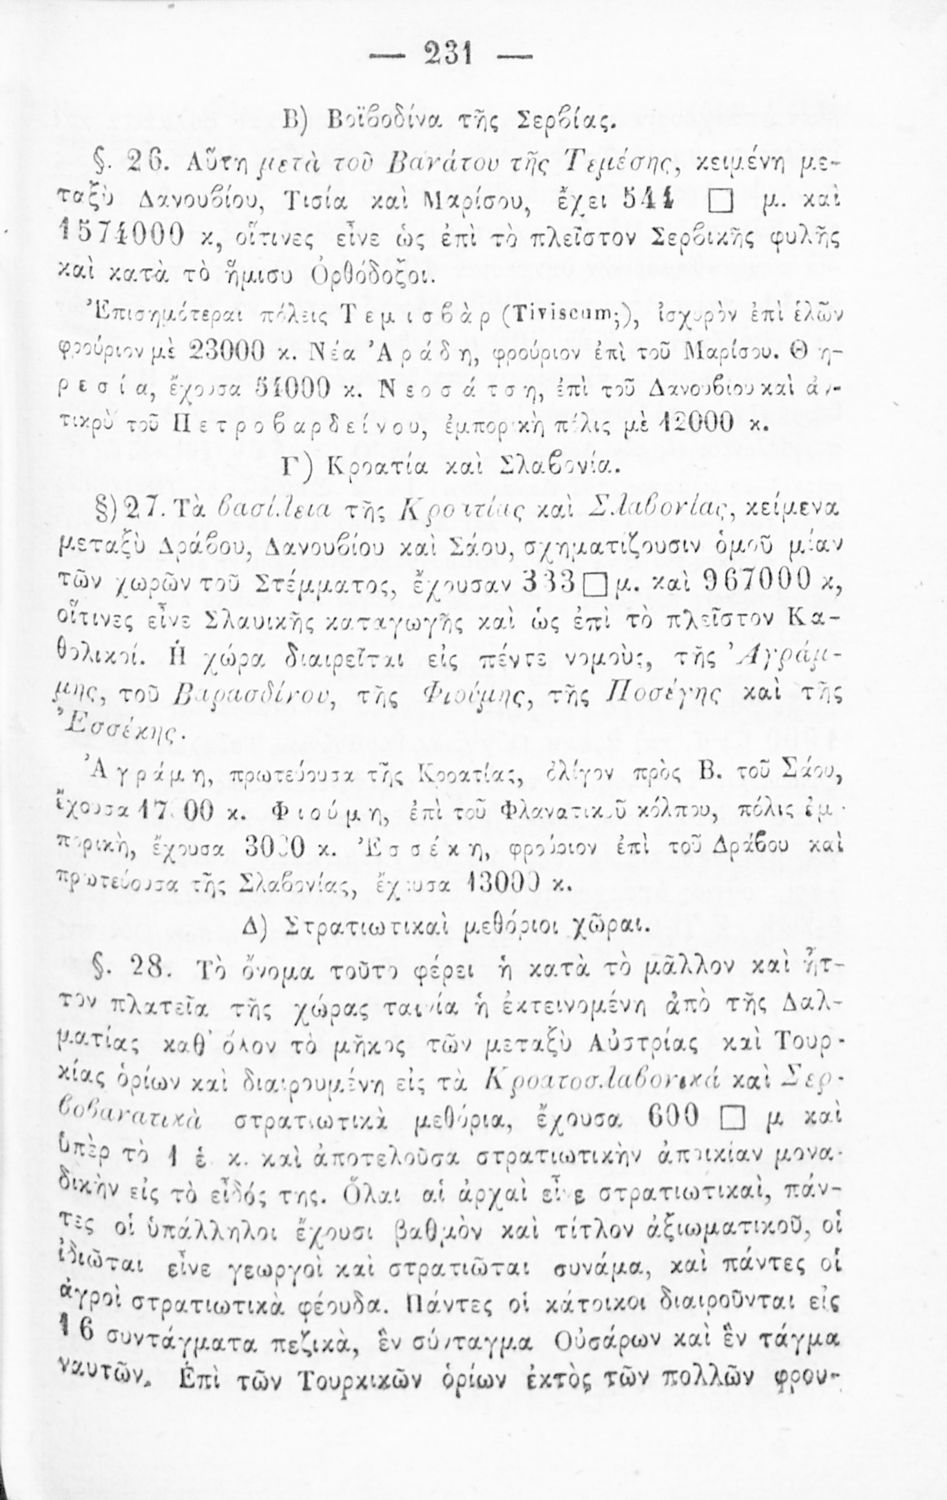 — 231 —
Β) Βοϊβοδίνα τῆς Σερβίας.
§. 26. Αὕτη μετὰ τοῦ Βανάτου τῆς Τεμέσης, κειμένη με-
ταξὺ Δανουβίου, Τισία καὶ Μαρίσου, ἔχει 544 □ μ. καὶ
1574000 κ, οἵτινες εἶνε ὡς ἐπὶ τὸ πλεῖστον Σερβικῆς φυλῆς
καὶ κατὰ τὸ ἥμισυ Ὀρθόδοξοι.
Ἐπισημότεραι πόλεις Τεμισβὰρ (Tiviscum;), ἰσχυρὸν ἐπὶ ἑλῶν
φρούριον μὲ 23000 κ. Νέα Ἀράδη, φρούριον ἐπὶ τοῦ Μαρίσου. Θη-
ρεσία, ἔχουσα 54000 κ. Νεοσάτση, ἐπὶ τοῦ Δανουβίου καὶ ἀν-
τικρὺ τοῦ Πετροβαρδείνου, ἐμπορικὴ πόλις μὲ 12000 κ.
Γ) Κροατία καὶ Σλαβονία.
§) 27. Τὰ βασίλεια τῆς Κροατίας καὶ Σλαβονίας, κείμενα
μεταξὺ Δράβου, Δανουβίου καὶ Σάου, σχηματίζουσιν ὁμοῦ μίαν
τῶν χωρῶν τοῦ Στέμματος, ἔχουσαν 333 □ μ. καὶ 967000 κ,
οἵτινες εἶνε Σλαυικῆς καταγωγῆς καὶ ὡς ἐπὶ τὸ πλεῖστον Κα-
θολικοί. Ἡ χώρα διαιρεῖται εἰς πέντε νομοὺς, τῆς Ἀγράμ-
μης, τοῦ Βαρασδίνου, τῆς Φιούμης, τῆς Ποσέγης καὶ τῆς
Ἐσσέκης.
Ἀγράμη, πρωτεύουσα τῆς Κροατίας, ὀλίγον πρὸς Β. τοῦ Σάου,
ἔχουσα κ. Φιούμη, ἐπὶ τοῦ Φλανατικοῦ κόλπου, πόλις ἐμ-
πορικὴ, ἔχουσα κ. Ἐσσέκη, φρούριον ἐπὶ τοῦ Δράβου καὶ
πρωτεύουσα τῆς Σλαβονίας, ἔχουσα 13000 κ.
Δ) Στρατιωτικαὶ μεθόριοι χῶραι.
§. 28. Τὸ ὄνομα τοῦτο φέρει ἡ κατὰ τὸ μᾶλλον καὶ ἧτ-
τον πλατεῖα τῆς χώρας ταινία ἡ ἐκτεινομένη ἀπὸ τῆς Δαλ-
ματίας καθ' ὅλον τὸ μῆκος τῶν μεταξὺ Αὐστρίας καὶ Τουρ-
κίας ὁρίων καὶ διαιρουμένη εἰς τὰ Κροατοσλαβονικά καὶ Σερ-
βοβανατικὰ στρατιωτικὰ μεθόρια, ἔχουσα 600 □ μ καὶ
ὑπὲρ τὸ 1 ἑ. κ. καὶ ἀποτελοῦσα στρατιωτικὴν ἀποικίαν μονα-
δικὴν εἰς τὸ εἶδός της. Ὅλαι αἱ ἀρχαὶ εἶνε στρατιωτικαὶ, πάν-
τες οἱ ὑπάλληλοι ἔχουσι βαθμὸν καὶ τίτλον ἀξιωματικοῦ, οἱ
ἰδιῶται εἶνε γεωργοὶ καὶ στρατιῶται συνάμα, καὶ πάντες οἱ
ἀγροὶ στρατιωτικὰ φέουδα. Πάντες οἱ κάτοικοι διαιροῦνται εἰς
16 συντάγματα πεζικὰ, ἓν σύνταγμα Οὐσάρων καὶ ἓν τάγμα
ναυτῶν. Ἐπὶ τῶν Τουρκικῶν ὁρίων ἐκτὸς τῶν πολλῶν φρου-